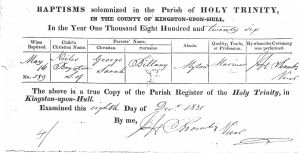 BAPTISMS solemnized in the Parish of HOLY TRINITY,
IN THE COUNTY OF KINGSTON-UPON-HULL,
In the Year One Thousand Eight Hundred and twenty six
When Baptized. Child's Christian Name. Parents' Name. Christian. Surname. Abode. Quality, Trade, or Profession. By whom the Ceremony was performed.
May George Billany Myton Mariner
16 Sarah Vicar
No. 589 Son of
The above is a true Copy of the Parish Register of the Holy Trinity, in
Kingston-upon-Hull.
Examined this eighth Day of Decr 1831
By me,
Vicar